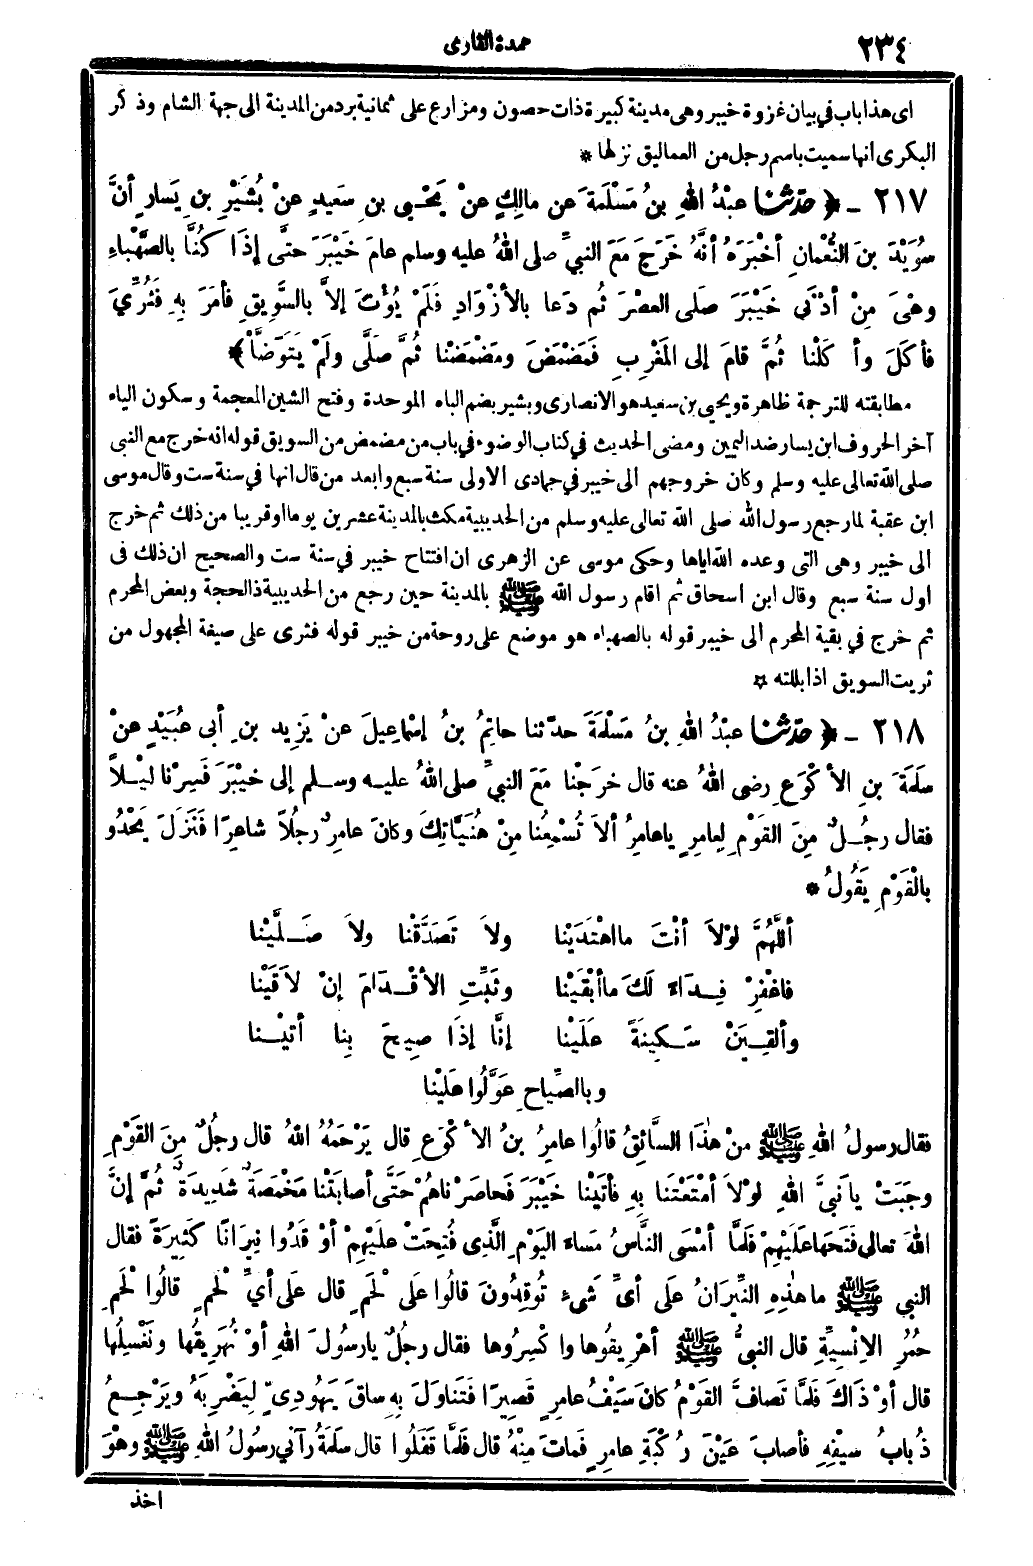 ٢٣٤
عمدة القارى
اى هذا باب في بيان غزوة خيبر وهى مدينة كبيرة ذات حصون ومزارع على ثمانية برد من المدينة الى جهة الشام وذكر
البكرى انها سميت باسم رجل من العماليق نزلها *
٢١٧ - ﴿ حَدَّثَنَا عبْدُ اللهِ بنُ مَسْلَمَةَ عن مالِكٍ عنْ يَحْيى بنِ سَعِيدٍ عنْ بُشَيْرِ بنِ يَسارٍ أنَّ
سُوَيْدَ بنَ النُّعْمانِ أخْبَرَهُ أنَّهُ خَرَجَ مَعَ النبيِّ صلى اللهُ عليه وسلم عامَ خَيْبَرَ حتَّى إذَا كُنَّا بالصَّهْباءِ
وهْىَ مِنْ أدْنَى خَيْبَرَ صَلى العصْرَ ثُمَّ دَعا بالأزْوادِ فَلَمْ يُؤْتَ إلاَّ بالسَّوِيقِ فأمَرَ بِهِ فَثُرِّيَ
فأكَلَ وأ كَلْنا ثُمَّ قامَ إلى المَغْرِبِ فَمَضْمَضَ ومَضْمَضْنا ثُمَّ صَلَّى ولَمْ يَتَوَضَّأْ ﴾
مطابقته للترجمة ظاهرة ويحيى بن سعيد هو الانصارى وبشير بضم الباء الموحدة وفتح الشين المعجمة وسكون الياء
آخر الحروف ابن يسار ضد اليمين ومضى الحديث في كتاب الوضوء في باب من مضمض من السويق قوله انه خرج مع النبى
صلى الله تعالى عليه وسلم وكان خروجهم الى خيبر في جمادى الاولى سنة سبع وابعد من قال انها في سنة ست وقال موسى
ابن عقبة لما رجع رسول الله صلى الله تعالى عليه وسلم من الحديبية مكث بالمدينة عشرين يوما اوقريبا من ذلك ثم خرج
الى خيبر وهى التى وعده الله اياها وحكى موسى عن الزهرى ان افتتاح خيبر في سنة ست والصحيح ان ذلك فى
اول سنة سبع وقال ابن اسحاق ثم اقام رسول الله ﷺ بالمدينة حين رجع من الحديبية ذا الحجة وبعض المحرم
ثم خرج في بقية المحرم الى خيبر قوله بالصهباء هو موضع على روحة من خيبر قوله فثرى على صيغة المجهول من
ثريت السويق اذا بللته *
٢١٨ - ﴿ حَدَّثَنَا عبْدُ اللهِ بنُ مَسْلَمَةَ حدّثنا حاتِمُ بنُ إسْماعِيلَ عنْ يَزِيد بنِ أبى عُبَيْدٍ عنْ
سلَمَةَ بنِ الأكْوَعِ رضى اللهُ عنه قال خرَجْنا مَعَ النبيِّ صلى اللهُ عليه وسلم إلى خيْبَرَ فَسِرْنا ليْلاً
فقال رجُلٌ مِنَ القَوْمِ لِعامِرٍ ياعامِرُ ألاَ تُسْمِعُنا مِنْ هُنَيَّاتِكَ وكانَ عامِرٌ رجُلاً شاعِرًا فَنَزَلَ يَحْدُو
بالْقَوْمِ يَقُولُ *
أللَّهُمَّ لوْلاَ أنْتَ مااهْتَدَيْنا ولاَ تَصَدَّقْنا ولاَ صَلَّيْنا
فاغْفِرْ فِدَاءً لَكَ ماأبْقَيْنا وثَبِّتِ الأقْدَامَ إنْ لاَقَيْنا
وألْقِيَنْ سَكِينَةً عَلَيْنا إنَّا إذَا صِيحَ بِنا أتَيْنا
وبالصِّياحِ عَوَّلُوا عَلَيْنا
فقال رسولُ اللهِ ﷺ منْ هٰذَا السَّائِقُ قالُوا عامِرُ بنُ الأكْوَعِ قال يَرْحَمُهُ اللهُ قال رجُلٌ مِنَ القَوْمِ
وجَبَتْ يا نَبيَّ اللهِ لوْلاَ أمْتَعْتَنا بِهِ فأتَيْنا خَيْبَرَ فَحاصَرْناهُمْ حَتَّى أصابَتْنا مَخْمَصَةٌ شَدِيدَةٌ ثُمَّ إنَّ
اللهَ تعالى فَتَحَها عَلَيْهِمْ فَلَمَّا أمْسَى النَّاسُ مَساءَ اليَوْمِ الَّذِى فُتِحَتْ علَيْهِمْ أوْ قَدُوا نِيرَانًا كَثِيرَةً فقال
النبي ﷺ ما هٰذِهِ النِّيرَانُ علَى أىِّ شَىْءٍ تُوقِدُونَ قالُوا علَى لْحَمٍ قال علَى أيِّ لْحَمٍ قالُوا لَحْمِ
حُمُرِ الإنْسِيَّةِ قال النبيُّ ﷺ أهْرِيقُوها واكْسِرُوها فقال رجُلٌ يارسُولَ اللهِ أوْ نُهَرِيقُها ونَغْسِلُها
قال أوْ ذَاكَ فَلَمَّا تَصافَّ القَوْمُ كانَ سَيْفُ عامِرٍ قَصِيرًا فَتَناوَلَ بِهِ ساقَ يَهُودِىٍّ لِيَضْرِبَهُ ويَرْجِعُ
ذُبابُ سيْفِهِ فأصابَ عَيْنَ رُكْبَةِ عامِرٍ فَماتَ مِنْهُ قال فَلَمَّا قَفَلُوا قال سَلَمَةُ رَآنِي رسُولُ اللهِ ﷺ وهْوَ
اخذ